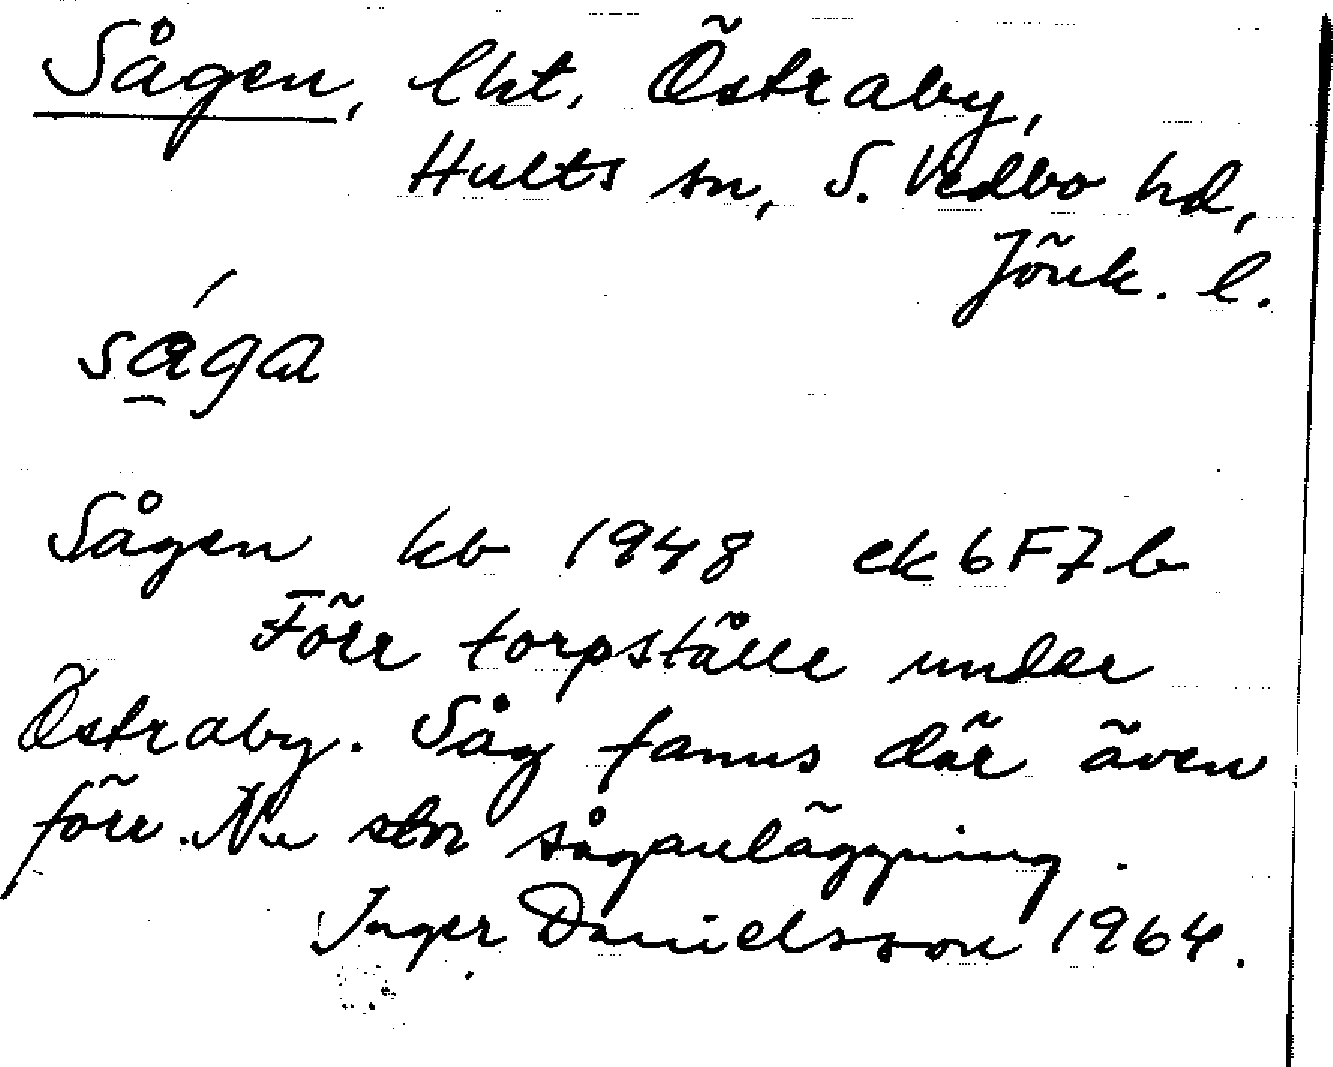 Sågen, lht. Östraby,
Hults sn, S. Vedbo hd,
Jönk. l.
såga
Sågen kb 1948 ekb F7b
Förr torpställe under
Östraby. Såg fanns där även
förr. Nu stor såganläggning.
Inger Danielsson 1964.